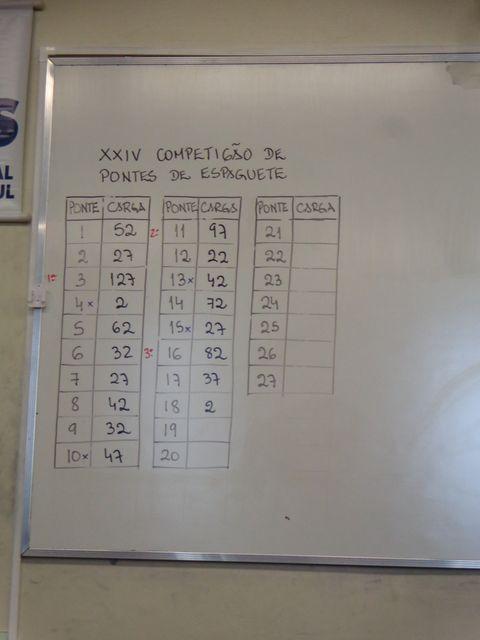 XXIV COMPETIÇÃO DE
PONTES DE ESPAGUETE
PONTE CARGA
1 52
2 27
1º 3 127
4 x 2
5 62
6 32
7 27
8 42
9 32
10 x 47
PONTE CARGA
2º 11 97
12 22
13 x 42
14 72
15 x 27
3º 16 82
17 37
18 2
19
20
PONTE CARGA
21
22
23
24
25
26
27
S
AL
UL